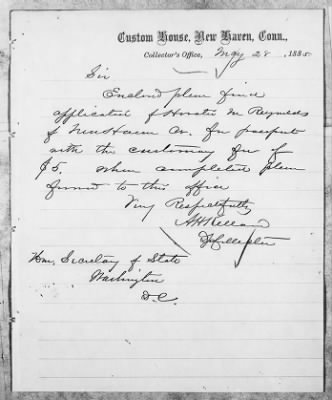 Custom House, New Haven, Conn.,
Collector's Office, May 28, 1885
Sir
Enclosed please find
application of Horatio M Reynolds
of New Haven Ct. for passport
with the customary fee of
$5. when completed please
forward to this office
Very Respectfully
Hon. Secretary of State
Washington
D.C.